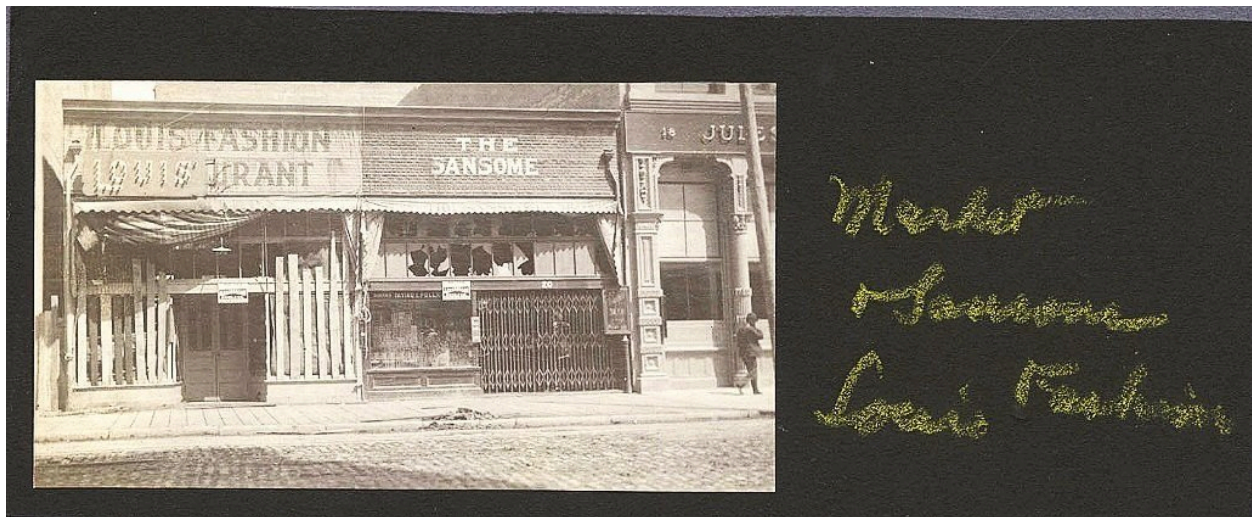 LOUIS FASHION
LOUIS' URANT
THE
SANSOME
18 JULES
20
Market
+ Sansome
Louis Fashion